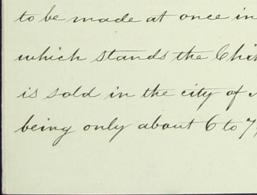 to be made at once in
which stands the Chi
is sold in the city of
being only about 6 to 7